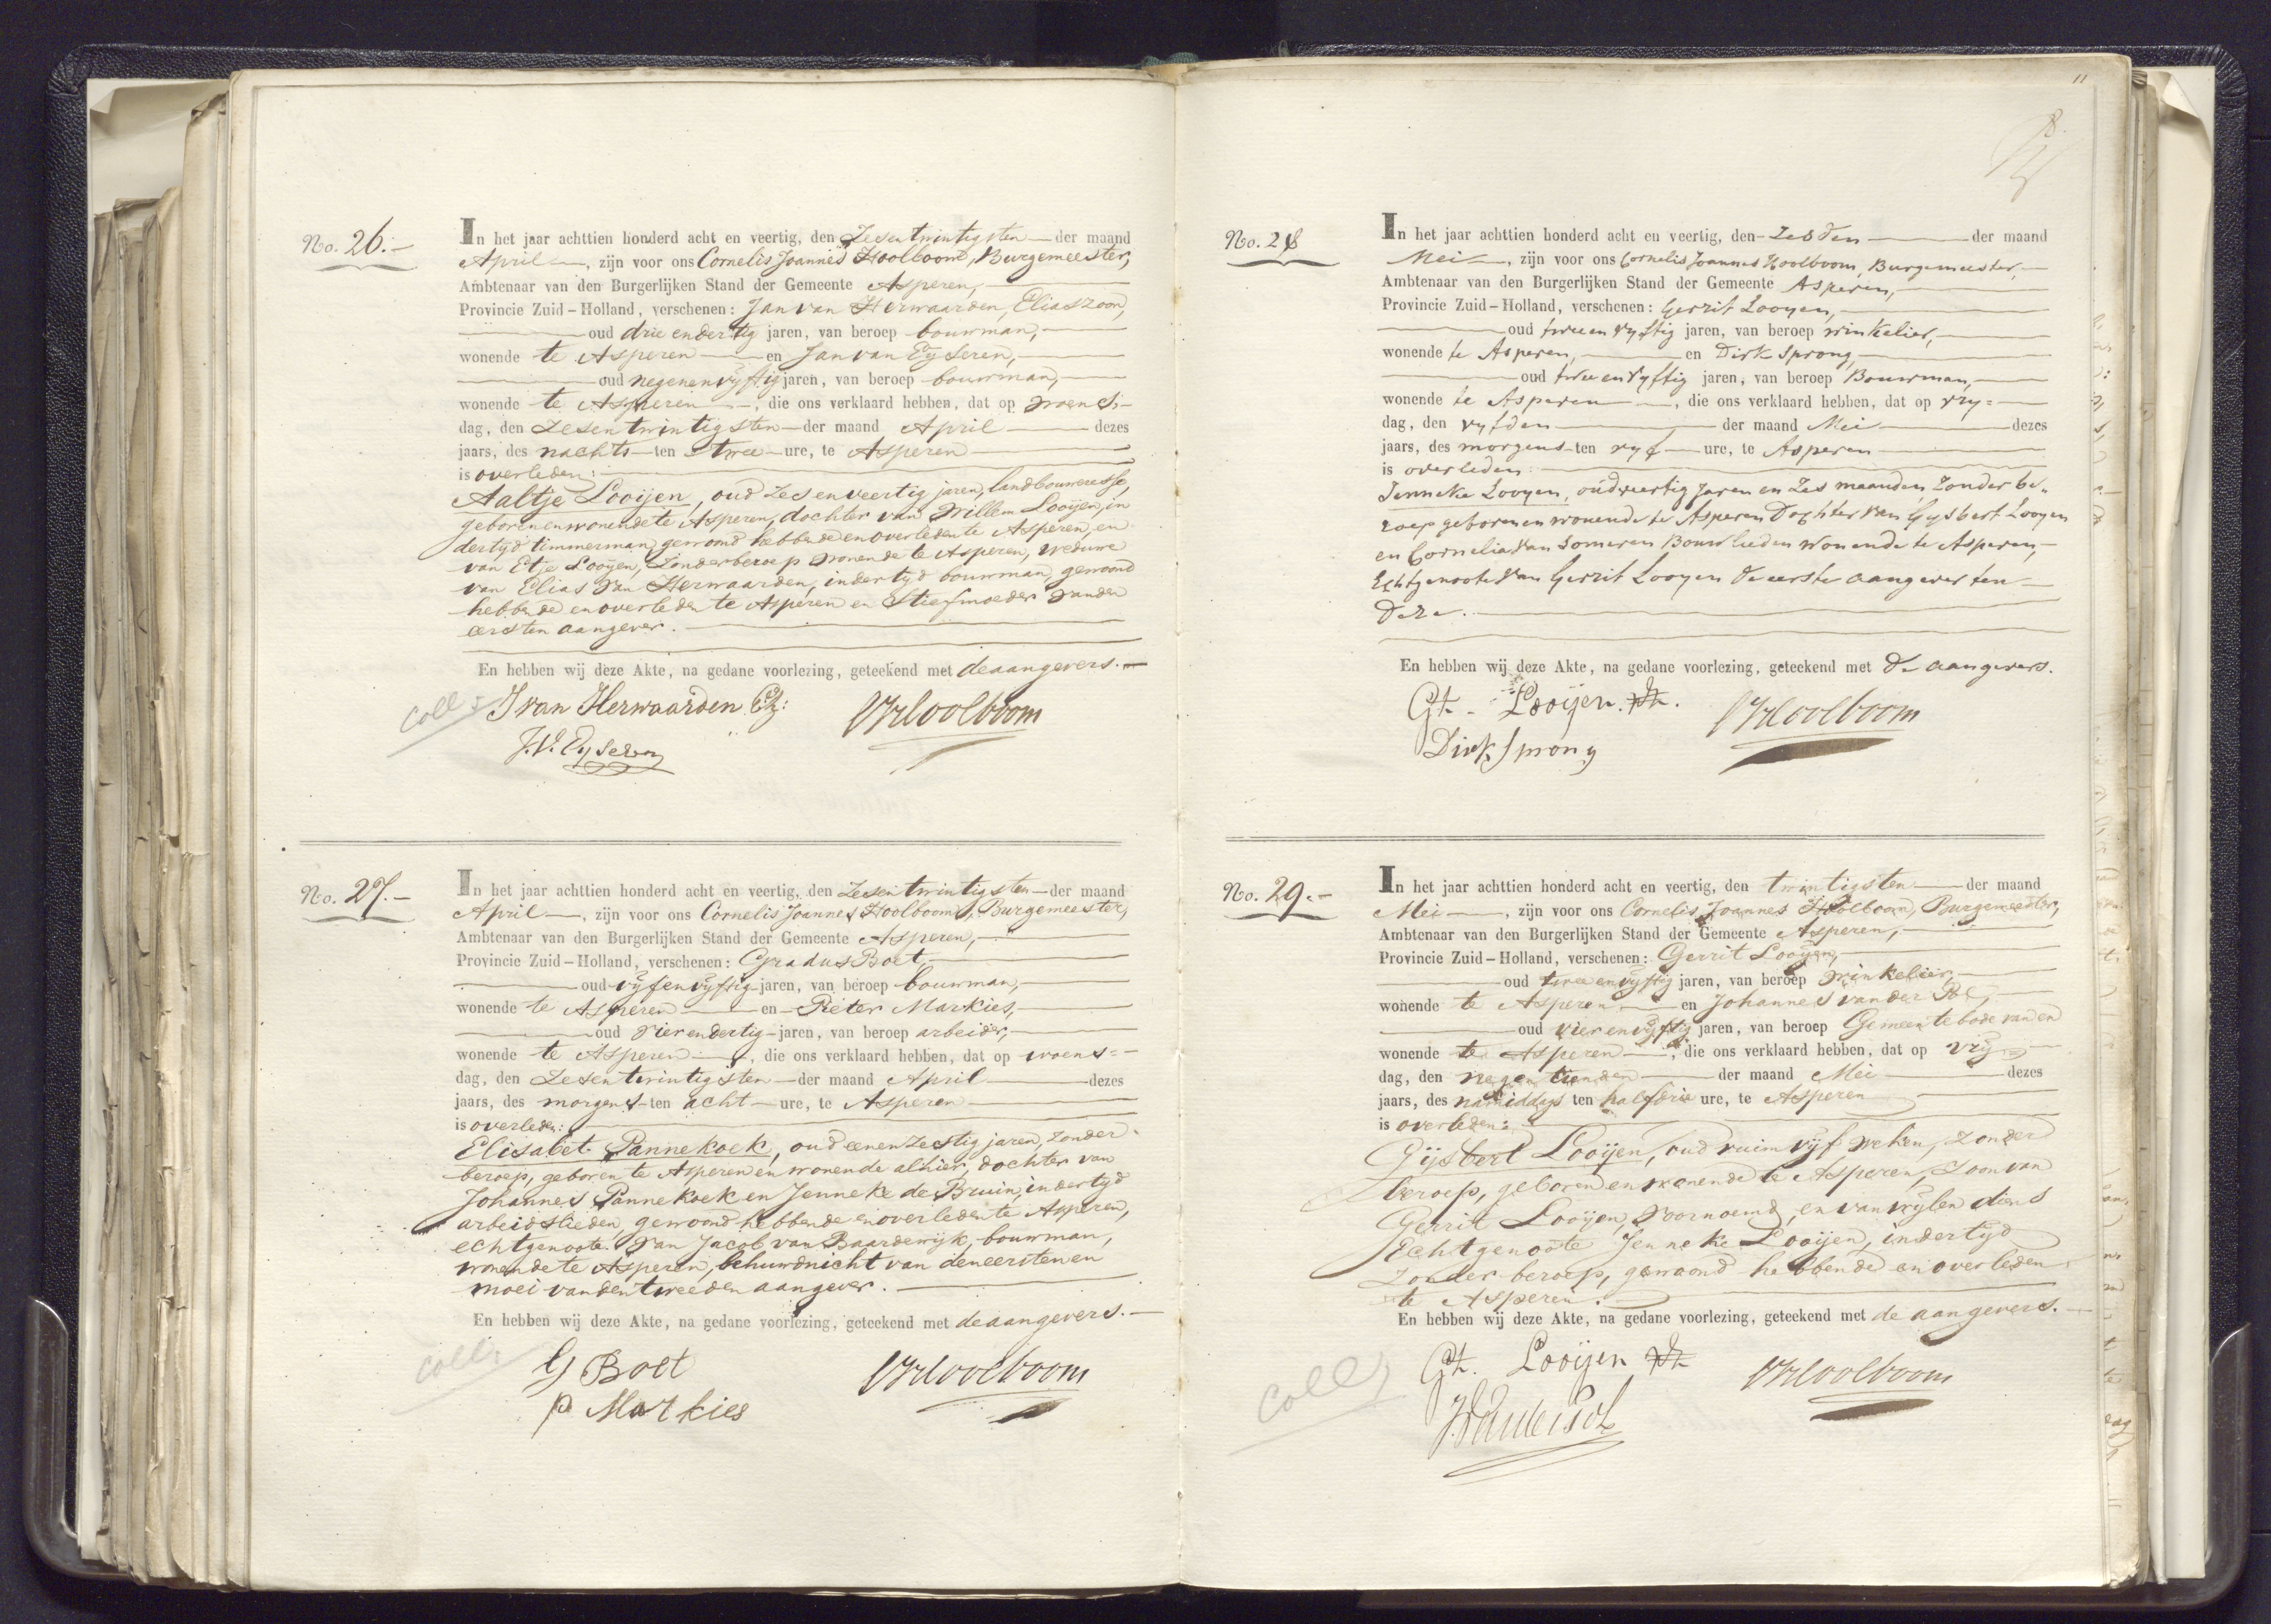 No. 26.-
In het jaar achttien honderd acht en veertig, den Zesentwintigsten der maand
April, zijn voor ons Cornelis Joannes Hoolboom, Burgemeester,
Ambtenaar van den Burgerlijken Stand der Gemeente Asperen,
Provincie Zuid-Holland, verschenen: Jan van Herwaarden, Eliaszoon,
oud drie en dertig jaren, van beroep bouwman,
wonende te Asperen en Jan van Eyseren,
oud negenenvijftig jaren, van beroep bouwman,
wonende te Asperen, die ons verklaard hebben, dat op woens-
dag, den Zesentwintigsten der maand April dezes
jaars, des nachts ten twee ure, te Asperen
is overleden:
Aaltje Looijen, oud zesenveertig jaren, landbouweresse,
geboren en wonende te Asperen, dochter van Willem Looijen, in
dertijd timmerman, gewoond hebbende en overleden te Asperen, en
van Etje Looijen, zonder beroep wonende te Asperen, weduwe
van Elias van Herwaarden, indertijd bouwman, gewoond
hebbende en overleden te Asperen en Stiefmoeder van den
eersten aangever.
En hebben wij deze Akte, na gedane voorlezing, geteekend met de aangevers.
Coll:
J van Herwaarden Ez:
CJHoolboom
J.V. Eyseren
No. 27.-
In het jaar achttien honderd acht en veertig, den Zesentwintigsten der maand
April, zijn voor ons Cornelis Joannes Hoolboom, Burgemeester,
Ambtenaar van den Burgerlijken Stand der Gemeente Asperen,
Provincie Zuid-Holland, verschenen: Gradus Boet,
oud vijfenvijftig jaren, van beroep bouwman,
wonende te Asperen en Pieter Markies,
oud vierendertig jaren, van beroep arbeider,
wonende te Asperen, die ons verklaard hebben, dat op woens=
dag, den Zesentwintigsten der maand April dezes
jaars, des morgens ten acht ure, te Asperen
is overleden:
Elisabet Pannekoek, oud eenenzestig jaren, zonder
beroep, geboren te Asperen en wonende alhier, dochter van
Johannes Pannekoek en Jenneke de Bruin, indertijd
arbeidslieden, gewoond hebbende en overleden te Asperen,
echtgenoote van Jacob van Baardewijk, bouwman,
wonende te Asperen, behuwdnicht van den eersten en
moei van den tweeden aangever.
En hebben wij deze Akte, na gedane voorlezing, geteekend met de aangevers.
Coll:
G Boet
CJHoolboom
P Markies
11
No. 28
In het jaar achttien honderd acht en veertig, den Zesden der maand
Mei, zijn voor ons Cornelis Joannes Hoolboom, Burgemeester,
Ambtenaar van den Burgerlijken Stand der Gemeente Asperen,
Provincie Zuid-Holland, verschenen: Gerrit Looyen,
oud twee en vyftig jaren, van beroep winkelier,
wonende te Asperen, en Dirk Sprong,
oud twee en vyftig jaren, van beroep Bouwman,
wonende te Asperen, die ons verklaard hebben, dat op vry=
dag, den vyfden der maand Mei dezes
jaars, des morgens ten vyf ure, te Asperen
is overleden:
Jenneke Looyen, oud veertig Jaren en Zes maanden, Zonder be-
roep geboren en wonende te Asperen Dochter van Gysbert Looyen
en Cornelia van Someren Bouwlieden wonende te Asperen,
Echtgenoote van Gerrit Looyen de eerste aangever ten
Deze.
En hebben wij deze Akte, na gedane voorlezing, geteekend met de aangevers.
Gt. Looijen
CJHoolboom
Dirk Sprong
No. 29.-
In het jaar achttien honderd acht en veertig, den twintigsten der maand
Mei, zijn voor ons Cornelis Joannes Hoolboom, Burgemeester,
Ambtenaar van den Burgerlijken Stand der Gemeente Asperen,
Provincie Zuid-Holland, verschenen: Gerrit Looijen,
oud twee en vijftig jaren, van beroep winkelier,
wonende te Asperen en Johannes van der Pol,
oud vier en vijftig jaren, van beroep Gemeentebode van en
wonende te Asperen, die ons verklaard hebben, dat op vrij
dag, den negentienden der maand Mei dezes
jaars, des namiddags ten half drie ure, te Asperen
is overleden:
Gijsbert Looijen, oud ruim vijf weken, zonder
beroep, geboren en wonende te Asperen, Zoon van
Gerrit Looijen, voornoemd, en van wijlen diens
Echtgenoote Jenneke Looijen, indertijd
zonder beroep, gewoond hebbende en overleden
te Asperen.
En hebben wij deze Akte, na gedane voorlezing, geteekend met de aangevers.
Coll:
Gt. Looijen
CJHoolboom